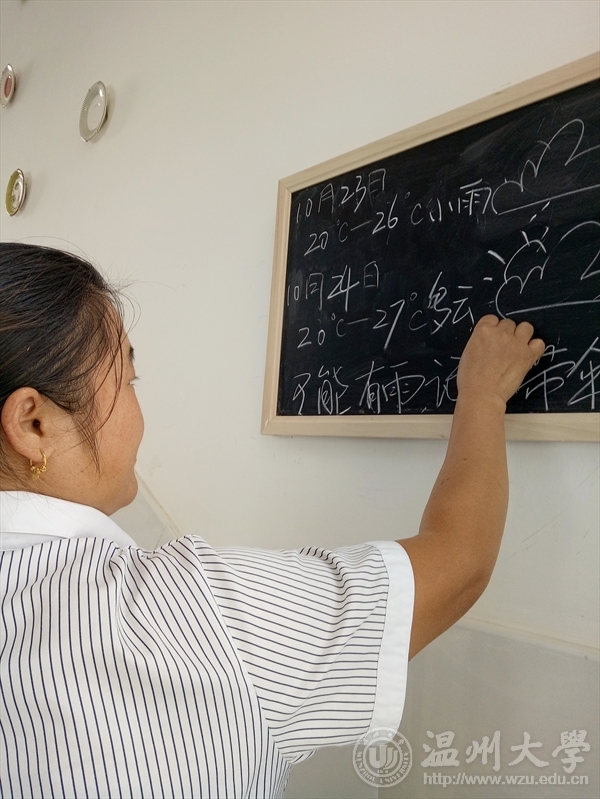 10月23日
20℃-26℃小雨
10月24日
20℃-27℃多云
可能有雨记 带伞
温州大学
http://www.wzu.edu.cn